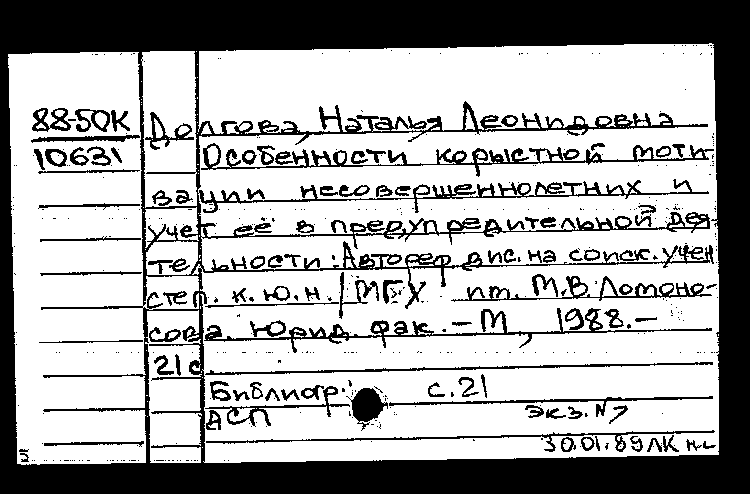 88-50К Долгова, Наталья Леонидовна
10631 Особенности корыстной моти
вации несовершеннолетних и
учет её в предупредительной дея-
тельности: Автореф дис. на соиск. учен
степ. к.ю.н. / МГУ им. М.В. Ломоно-
сова. Юрид. фак. – М, 1988. –
21 с.
Библиогр.: с. 21
АСП Экз. №
30.01.89 ЛК